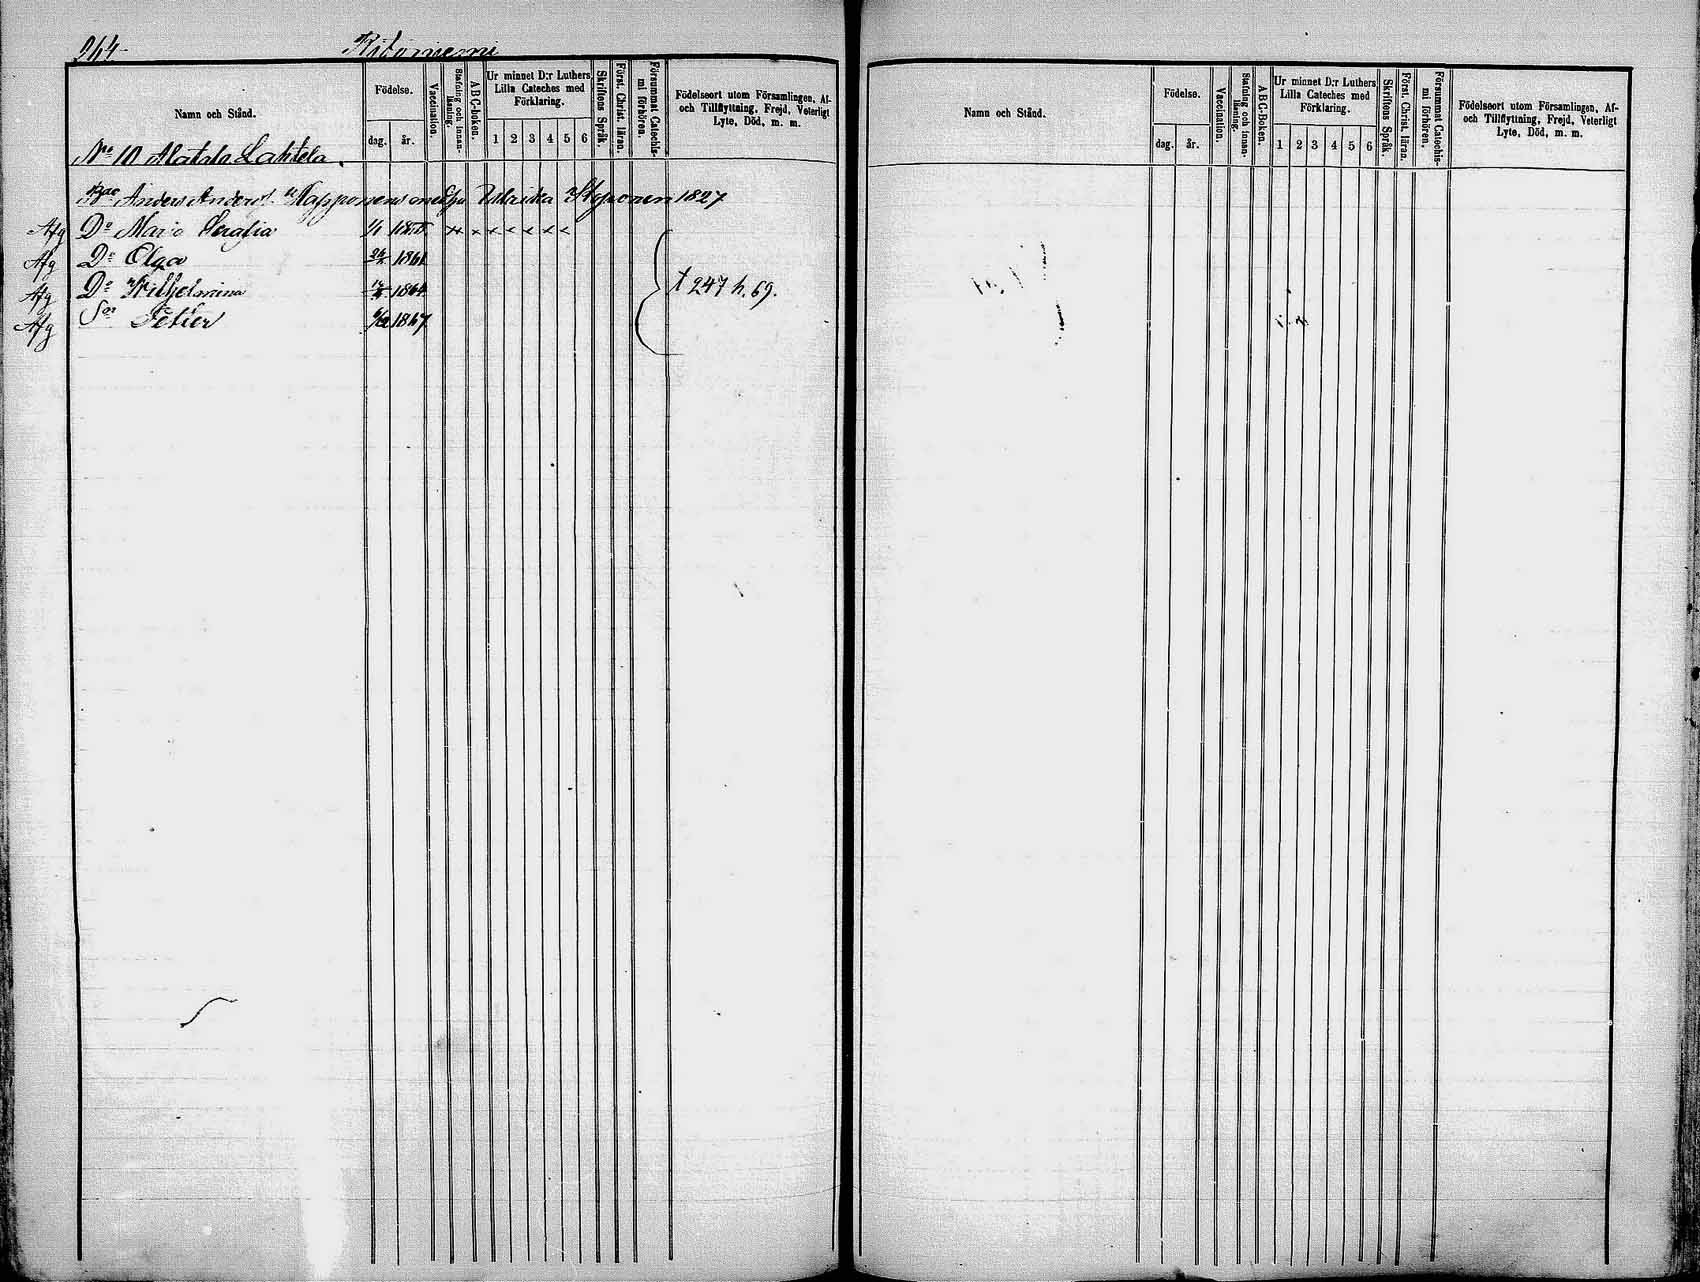 264.
Ritoniemi
Namn och Stånd.
Födelse.
dag. år.
Vaccination.
Stafning och innanläsning.
A B C-boken.
Ur minnet D:r Luthers Lilla Cateches med Förklaring.
1 2 3 4 5 6
Skriftens Språk.
Först. Christ. läran.
Försummat Catechismi förhören.
Födelseort utom Församlingen, Af- och Tillflyttning, Frejd, Veterligt Lyte, Död, m. m.
No 10 Alatalo Lahtela.
Anders Anders. Ulrika 1827
Afg Dr Maria Serafia 1/1
Afg Dr Olga 1861
Afg Dr Wilhelmina 1864
Afg Son Petter 1867
† 247 h. 69.
Namn och Stånd.
Födelse.
dag. år.
Vaccination.
Stafning och innanläsning.
A B C-Boken.
Ur minnet D:r Luthers Lilla Cateches med Förklaring.
1 2 3 4 5 6
Skriftens Språk.
Först. Christ. läran.
Försummat Catechismi förhören.
Födelseort utom Församlingen, Af- och Tillflyttning, Frejd, Veterligt Lyte, Död, m. m.